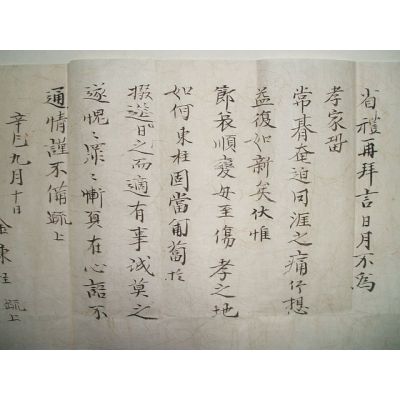 省禮再拜言日月不爲
孝家
常朞奄迫罔涯之痛仰想
益復如新矣伏惟
節哀順變毋至傷孝之地
如何東柱固當匍匐於
撤筵日之而適有事誠莫之
遂愧〃深〃慚負在心語不
通情謹不備疏上
辛巳九月十日 金東柱 疏上